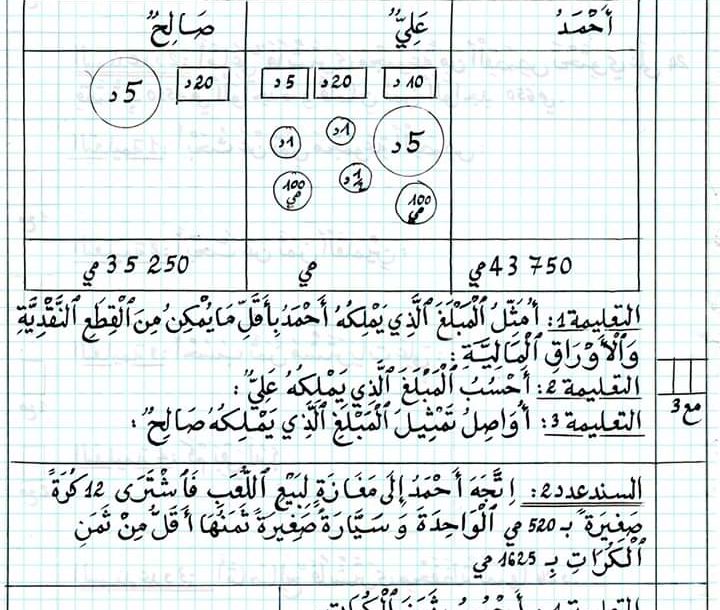 أَحْمَدُ	عَلِيٌّ	صَالِحٌ
10 د	20 د	5 د	20 د	5 د
5 د	1 د	1 د
1/2 د	100 مي	100 مي
43 750 مي	مي	35 250 مي
التعليمة 1: أُمَثِّلُ ٱلْمَبْلَغَ ٱلَّذِي يَمْلِكُهُ أَحْمَدُ بِأَقَلِّ مَا يُمْكِنُ مِنَ ٱلْقِطَعِ ٱلنَّقْدِيَّةِ
وَٱلْأَوْرَاقِ ٱلْمَالِيَّةِ:
التعليمة 2: أَحْسُبُ ٱلْمَبْلَغَ ٱلَّذِي يَمْلِكُهُ عَلِيٌّ:
التعليمة 3: أُوَاصِلُ تَمْثِيلَ ٱلْمَبْلَغِ ٱلَّذِي يَمْلِكُهُ صَالِحٌ:
مع3
السند عدد2: اِتَّجَهَ أَحْمَدُ إِلَى مَغَازَةٍ لِبَيْعِ ٱللُّعَبِ فَٱشْتَرَى 12 كُرَةً
صَغِيرَةً بـ 520 مي ٱلْوَاحِدَةَ وَ سَيَّارَةً صَغِيرَةً ثَمَنُهَا أَقَلُّ مِنْ ثَمَنِ
ٱلْكُرَاتِ بِـ 1625 مي